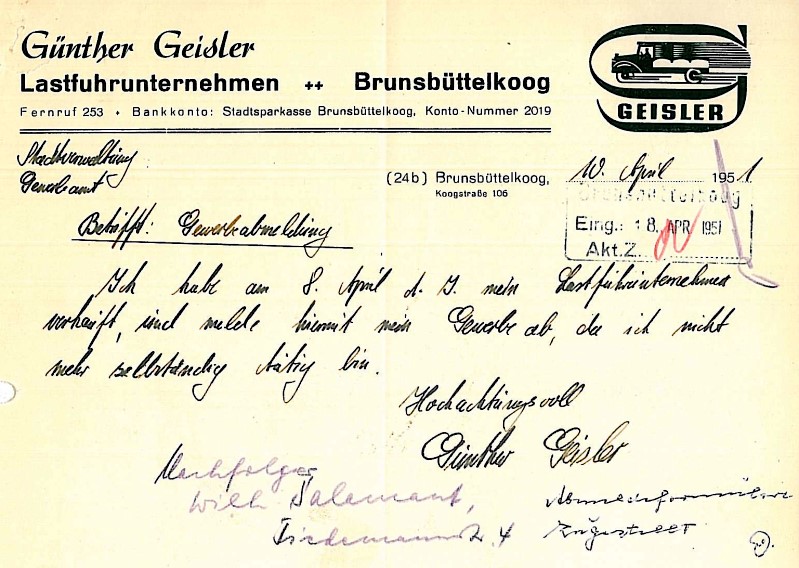 Günther Geisler
Lastfuhrunternehmen ++ Brunsbüttelkoog
Fernruf 253 + Bankkonto: Stadtsparkasse Brunsbüttelkoog, Konto-Nummer 2019
GEISLER
Stadtverwaltung
Gewerbeamt
(24b) Brunsbüttelkoog, 10. April 1951
Koogstraße 106
Brunsbüttelkoog
Eing.: 18. APR 1951
Akt.Z.
Betrifft: Gewerbeabmeldung
Ich habe am 8. April d. J. mein Lastfuhrunternehmen
verkauft, und melde hiermit mein Gewerbe ab, da ich nicht
mehr selbständig tätig bin.
Hochachtungsvoll
Günther Geisler
Nachfolger
Wilh. Salamant,
4
Abmeldeformulare
zugestellt